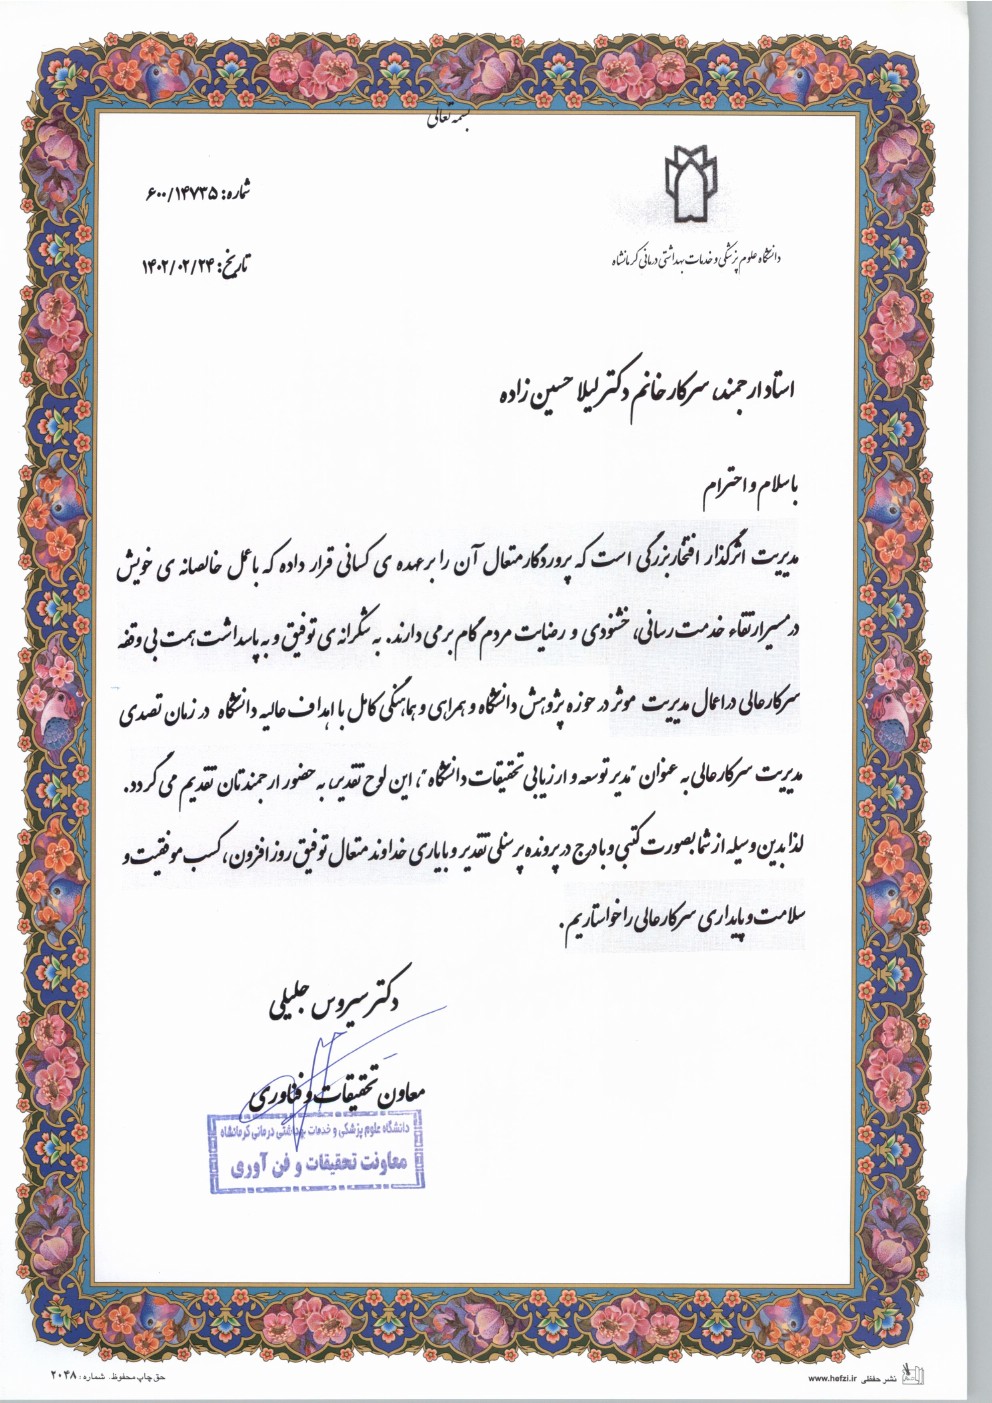 بسمه تعالی
شماره: ۶۰۰/۱۴۷۳۵
تاریخ: ۱۴۰۲/۰۲/۲۴
دانشگاه علوم پزشکی و خدمات بهداشتی درمانی کرمانشاه
استاد ارجمند، سرکار خانم دکتر لیلا حسین زاده
با سلام و احترام
مدیریت اثرگذار افتخار بزرگی است که پروردگار متعال آن را بر عهده ی کسانی قرار داده که با عمل خالصانه ی خویش
در مسیر ارتقاء خدمت رسانی، خشنودی و رضایت مردم گام برمی دارند. به شکرانه ی توفیق و به پاسداشت همت بی وقفه
سرکارعالی در اعمال مدیریت موثر در حوزه پژوهش دانشگاه و همراهی و هماهنگی کامل با اهداف عالیه دانشگاه در زمان تصدی
مدیریت سرکارعالی به عنوان "مدیر توسعه و ارزیابی تحقیقات دانشگاه"، این لوح تقدیر، به حضور ارجمندتان تقدیم می گردد.
لذا بدین وسیله از شما بصورت کتبی و با درج در پرونده پرسنلی تقدیر و با یاری خداوند متعال توفیق روزافزون، کسب موفقیت و
سلامت و پایداری سرکارعالی را خواستاریم.
دکتر سیروس جلیلی
معاون تحقیقات و فناوری
دانشگاه علوم پزشکی و خدمات بهداشتی درمانی کرمانشاه
معاونت تحقیقات و فن آوری
حق چاپ محفوظ. شماره: ۲۰۴۸
نشر حفظی www.hefzi.ir